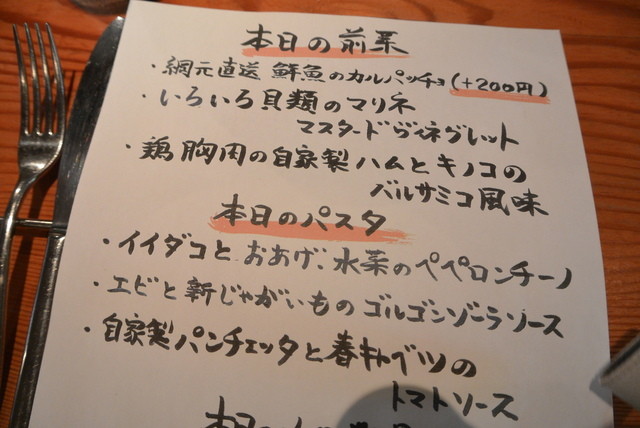 本日の前菜
・網元直送 鮮魚のカルパッチョ(+200円)
・いろいろ貝類のマリネ
マスタードヴィネグレット
・鶏胸肉の自家製ハムとキノコの
バルサミコ風味
本日のパスタ
・イイダコとおあげ、水菜のペペロンチーノ
・エビと新じゃがいものゴルゴンゾーラソース
・自家製パンチェッタと春キャベツの
トマトソース
本日の